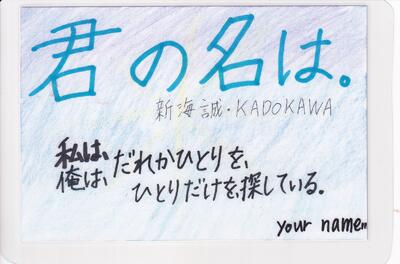 君の名は。
新海誠・KADOKAWA
私は、
俺は、だれかひとりを、
ひとりだけを、探している。
your name.